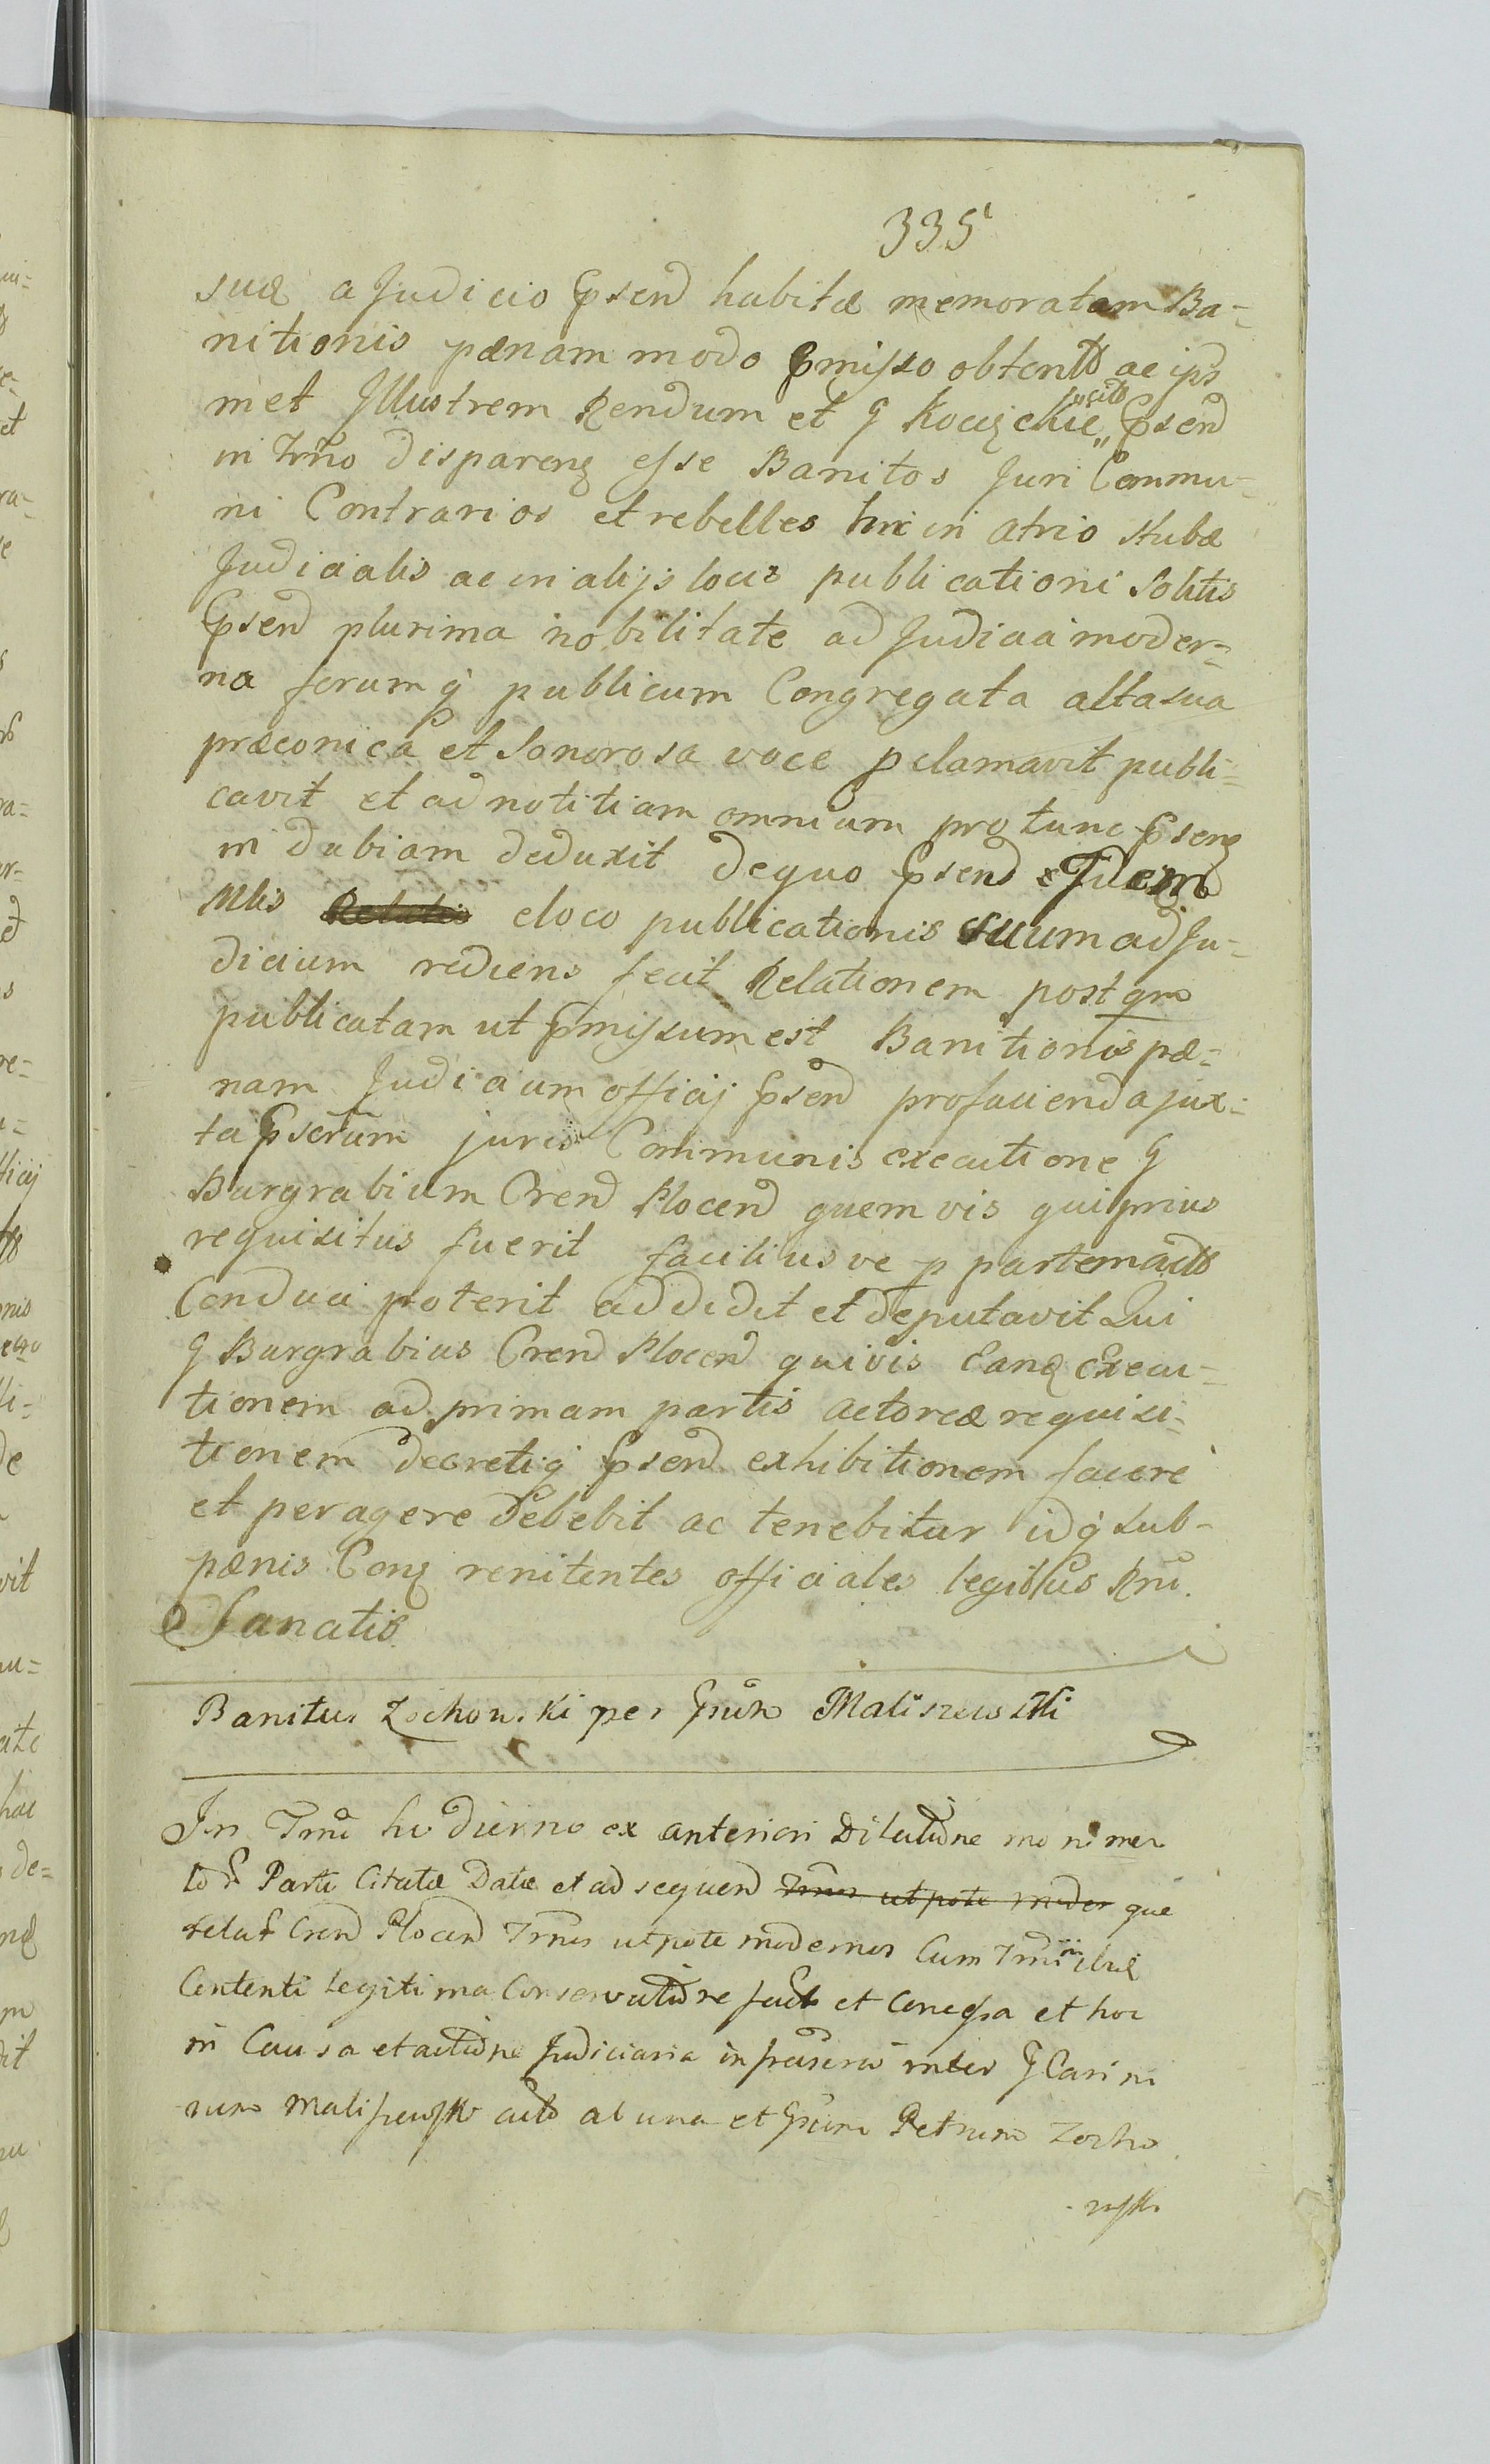 335
suæ a Judicio Psend habitæ memoratam Ba-
nitionis pænam modo Pmisso obtent ac ips
met Illustrem Rendum et G Kociszckie citt Psend
in Trno disparens esse Banitos Juri Commu-
ni Contrarios et rebelles hic in atrio stubæ
Judicialis ac in alijs locis publicationi Solitis
Psend plurima nobilitate ad Judicia moder=
na forumq publicum Congregata alta sua
præconica et Sonorosa voce pclamavit publi=
cavit et ad notitiam omnium pro tunc Psens
in dubiam deduxit dequo Psend Idem
Mlis Relatio eloco publicationis suum ad Ju-
dicium rediens fecit Relationem post qm
publicatam ut Pmissum est Banitionis pæ=
nam Judicium officij Psend pro facienda jux=
ta Pscrum juris Communis executione G
Burgrabium Cren Plocen quemvis qui prius
requisitus fuerit faciliusve p partem act
Conduci poterit addidit et deputavit Qui
G Burgrabius Cren Plocen quivis Eanq Execu-
tionem ad primam partis actoreæ requisi-
tionem decretiq Psend exhibitionem facere
et peragere debebit ac tenebitur idq sub-
pænis Cons renitentes officiales legibus Rni
Sancitis
Banitus Zochowski per Gsum Maliszewski
In Trno hodierno ex anteriori Dilatione
Parti Citatæ Datæ et ad sequen Trnos utpote moder que
relar Cren Plocen Trnos utpote modernos Cum Trni
Contenti legitima Conservatione fact et Concessa et hoc
in Causa et actione Judiciaria infrascri inter G Casimi
rum Maliszewski act ab una et Gsum Petrum Zocho
wski